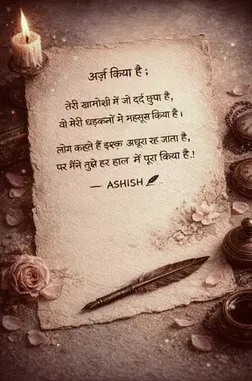 अर्ज़ किया है ;
तेरी ख़ामोशी में जो दर्द छुपा है,
वो मेरी धड़कनों ने महसूस किया है।
लोग कहते हैं इश्क़ अधूरा रह जाता है,
पर मैंने तुझे हर हाल में पूरा किया है.!
— ASHISH